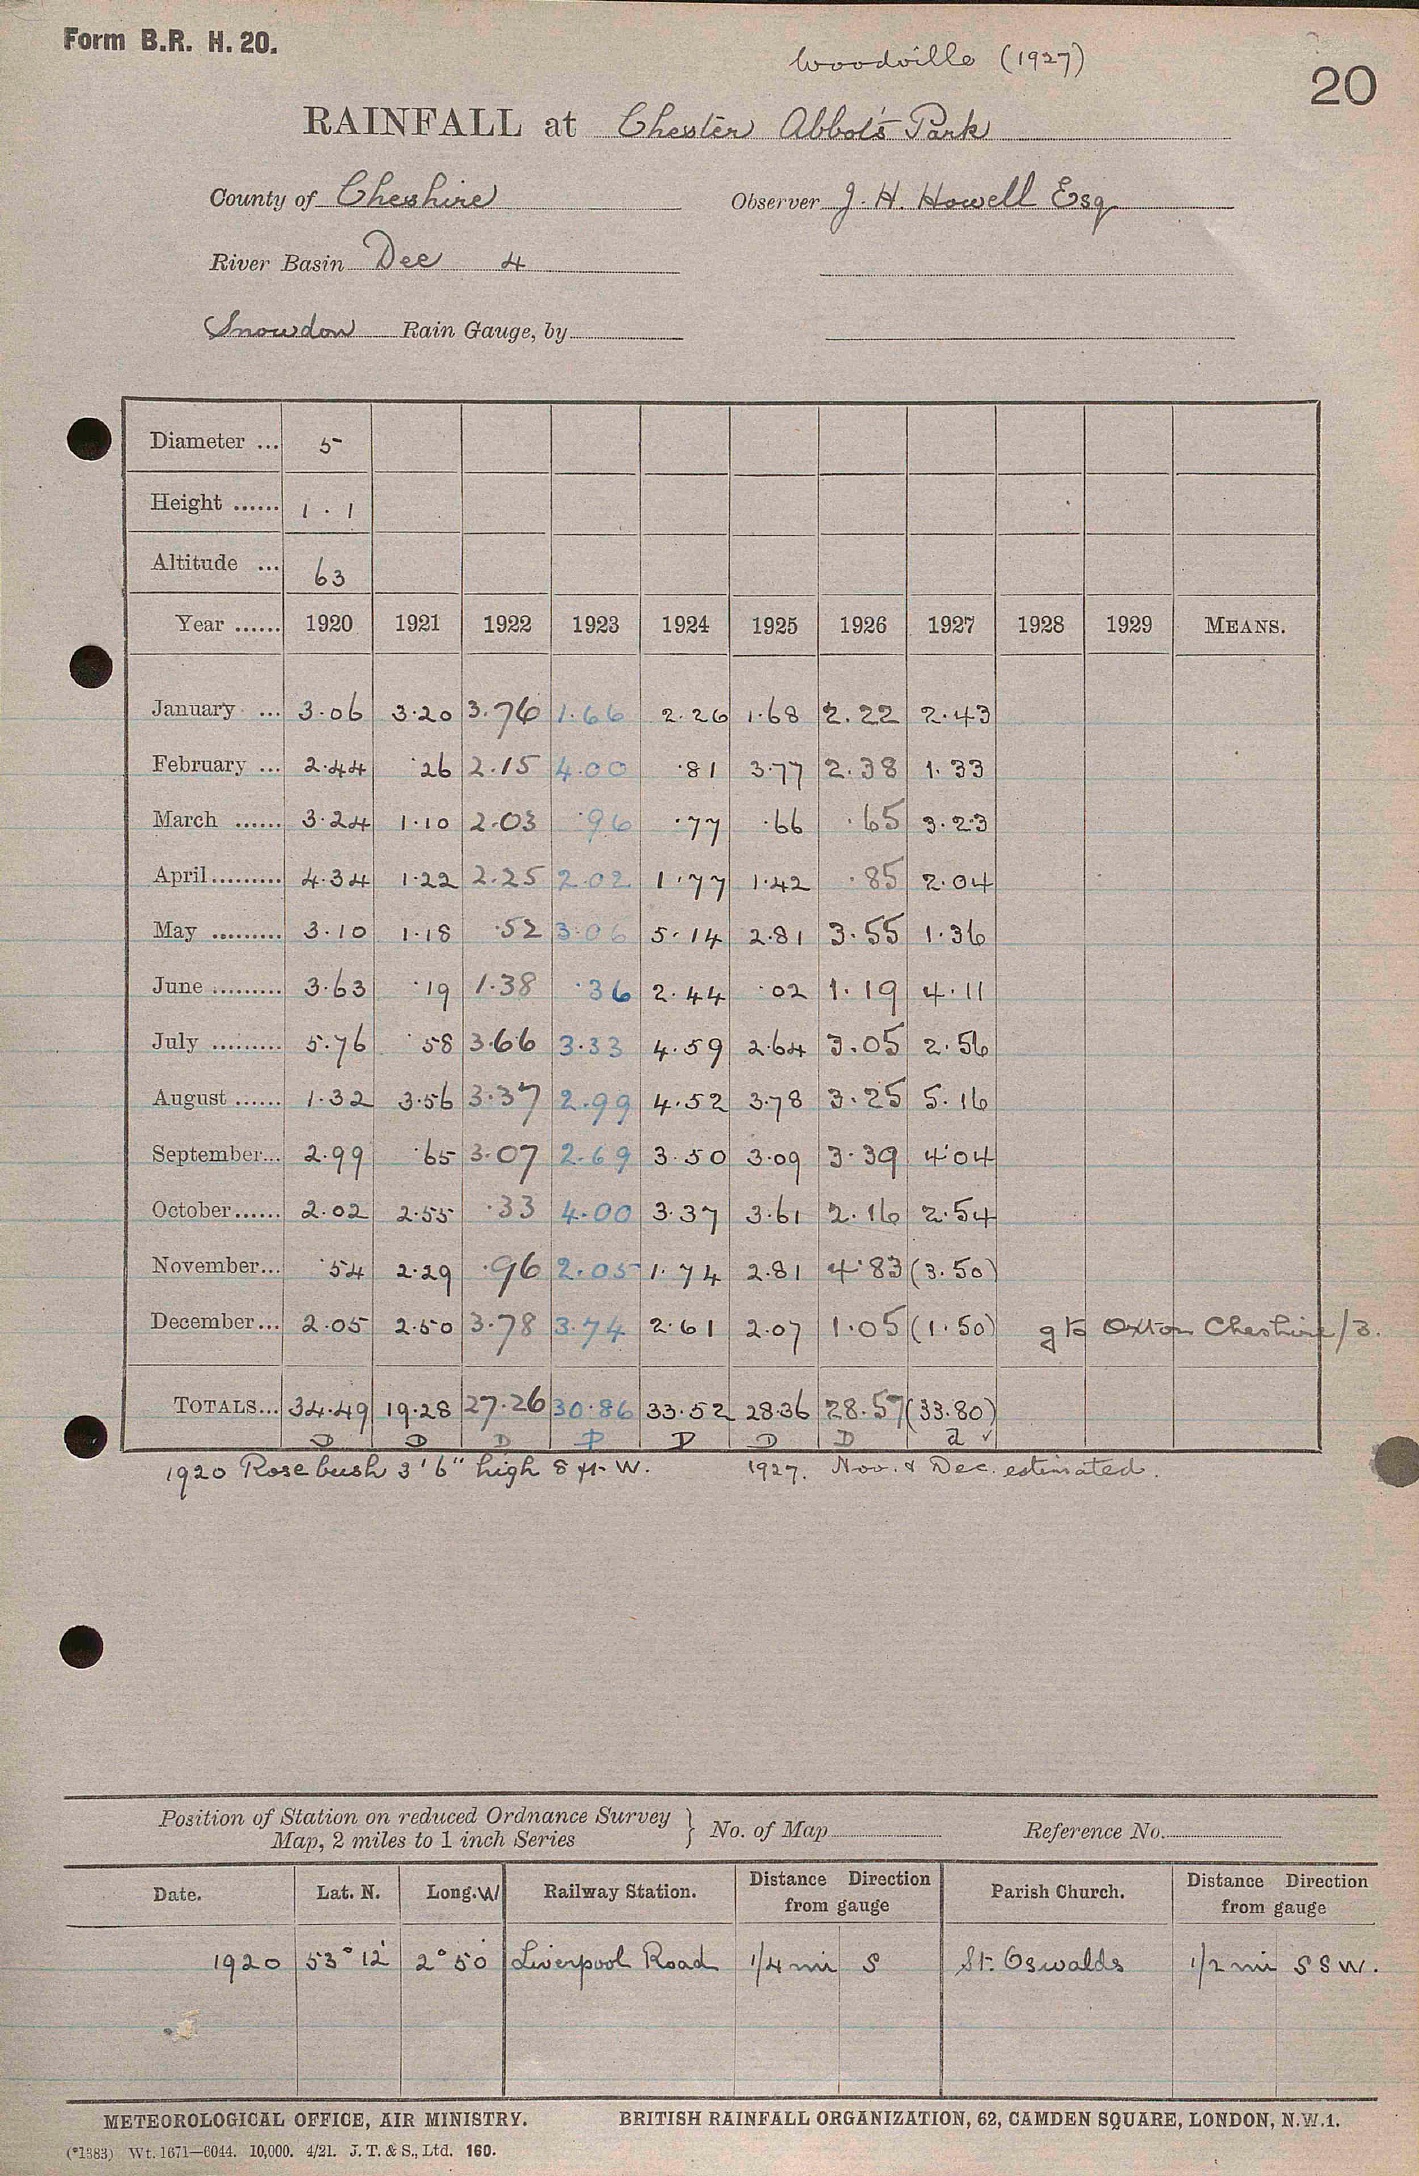 Form B.R. H. 20.
Woodville (1927)
20
RAINFALL at Chester Abbot's Park
County of Cheshire Observer J. H. Howell Esq
River Basin Dee 4
Snowdon Rain Gauge, by
Diameter ... 5
Height ...... 1 . 1
Altitude ... 63
Year ...... 1920 1921 1922 1923 1924 1925 1926 1927 1928 1929 MEANS.
January ... 3.06 3.20 3.76 1.66 2.26 1.68 2.22 2.43
February ... 2.44 .26 2.15 4.00 .81 3.77 2.38 1.33
March ...... 3.24 1.10 2.03 .96 .77 .66 .65 3.23
April ......... 4.34 1.22 2.25 2.02 1.77 1.42 .85 2.04
May ......... 3.10 1.18 .52 3.06 5.14 2.81 3.55 1.36
June ......... 3.63 .19 1.38 .36 2.44 .02 1.19 4.11
July ......... 5.76 .58 3.66 3.33 4.59 2.64 3.05 2.56
August ...... 1.32 3.56 3.37 2.99 4.52 3.78 3.25 5.16
September... 2.99 .65 3.07 2.69 3.50 3.09 3.39 4.04
October...... 2.02 2.55 .33 4.00 3.37 3.61 2.16 2.54
November... .54 2.29 .96 2.05 1.74 2.81 4.83 (3.50)
December... 2.05 2.50 3.78 3.74 2.61 2.07 1.05 (1.50) g to Oxton Cheshire/3.
TOTALS... 34.49 19.28 27.26 30.86 33.52 28.36 28.57 (33.80)
D D D P D D D d ✓
1920 Rose bush 3' 6" high 8 ft. W. 1927. Nov. & Dec. estimated.
Position of Station on reduced Ordnance Survey
Map, 2 miles to 1 inch Series } No. of Map Reference No.
Date. Lat. N. Long. W Railway Station. Distance Direction from gauge Parish Church. Distance Direction from gauge
1920 53° 12' 2° 50' Liverpool Road 1/4 mi S St. Oswalds 1/2 mi S S W.
METEOROLOGICAL OFFICE, AIR MINISTRY. BRITISH RAINFALL ORGANIZATION, 62, CAMDEN SQUARE, LONDON, N.W.1.
(*1383) Wt. 1671—6044. 10,000. 4/21. J. T. & S., Ltd. 160.